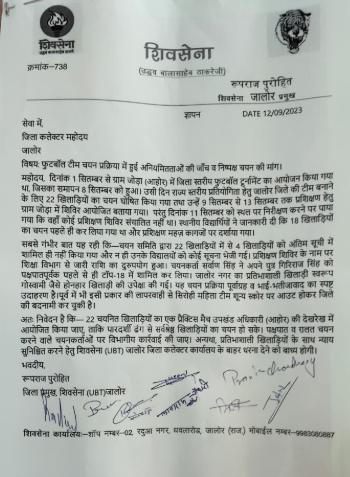 शिवसेना
क्रमांक-738
शिवसेना
(उद्धव बालासाहेब ठाकरेजी)
रूपराज पुरोहित
शिवसेना जालोर प्रमुख
ज्ञापन DATE 12/09/2023
सेवा में,
जिला कलेक्टर महोदय
जालोर
विषय: फुटबॉल टीम चयन प्रक्रिया में हुई अनियमितताओं की जाँच व निष्पक्ष चयन की मांग।
महोदय, दिनांक 1 सितम्बर से ग्राम जोड़ा (आहोर) में जिला स्तरीय फुटबॉल टूर्नामेंट का आयोजन किया गया
था, जिसका समापन 8 सितम्बर को हुआ। उसी दिन राज्य स्तरीय प्रतियोगिता हेतु जालोर जिले की टीम बनाने
के लिए 22 खिलाड़ियों का चयन घोषित किया गया तथा उन्हें 9 सितम्बर से 13 सितम्बर तक प्रशिक्षण हेतु
ग्राम जोड़ा में शिविर आयोजित बताया गया। परंतु दिनांक 11 सितम्बर को स्थल पर निरीक्षण करने पर पाया
गया कि वहाँ कोई प्रशिक्षण शिविर संचालित नहीं था। स्थानीय विद्यार्थियों ने जानकारी दी कि 18 खिलाड़ियों
का चयन पहले ही कर लिया गया था और प्रशिक्षण महज़ कागजों पर दर्शाया गया।
सबसे गंभीर बात यह रही कि—चयन समिति द्वारा 22 खिलाड़ियों में से 4 खिलाड़ियों को अंतिम सूची में
शामिल ही नहीं किया गया और न ही उनके विद्यालयों को कोई सूचना भेजी गई। प्रशिक्षण शिविर के नाम पर
शिक्षा विभाग से जारी राशि का दुरुपयोग हुआ। चयनकर्ता सर्वण सिंह ने अपने पुत्र गिरिराज सिंह को
पक्षपातपूर्वक पहले से ही टॉप-18 में शामिल कर लिया। जालोर नगर का प्रतिभाशाली खिलाड़ी स्वरूप
गोस्वामी जैसे होनहार खिलाड़ी की उपेक्षा की गई। यह चयन प्रक्रिया पूर्वाग्रह व भाई-भतीजावाद का स्पष्ट
उदाहरण है।पूर्व में भी इसी प्रकार की लापरवाही से सिरोही महिला टीम शून्य स्कोर पर आउट होकर जिले
की बदनामी कर चुकी है।
अतः निवेदन है कि— 22 चयनित खिलाड़ियों का एक प्रैक्टिस मैच उपखंड अधिकारी (आहोर) की देखरेख में
आयोजित किया जाए, ताकि पारदर्शी ढंग से सर्वश्रेष्ठ खिलाड़ियों का चयन हो सके। पक्षपात व गलत चयन
करने वाले चयनकर्ताओं पर विभागीय कार्रवाई की जाए। अन्यथा, प्रतिभाशाली खिलाड़ियों के साथ न्याय
सुनिश्चित करने हेतु शिवसेना (UBT) जालोर जिला कलेक्टर कार्यालय के बाहर धरना देने को बाध्य होगी।
भवदीय,
रूपराज पुरोहित
जिला प्रमुख, शिवसेना (UBT)जालोर
शिवसेना कार्यालय:-शॉप नम्बर-02, रदुआ नगर, मयलारोड, जालोर (राज.) मोबाईल नम्बर-9983080887